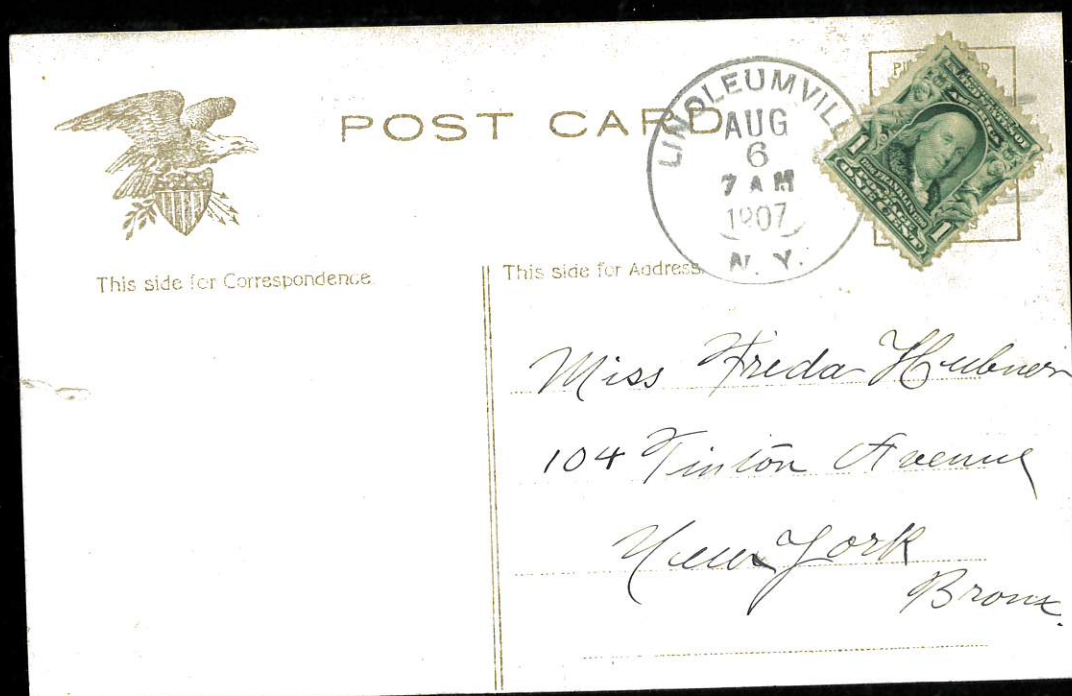 POST CARD
LINOLEUMVILL
AUG
6
7 AM
1907
N. Y.
1
ONE CENT
1
This side for Correspondence
This side for Address.
Miss Freda Hubner
104 Tinton Avenue
New York
Bronx.